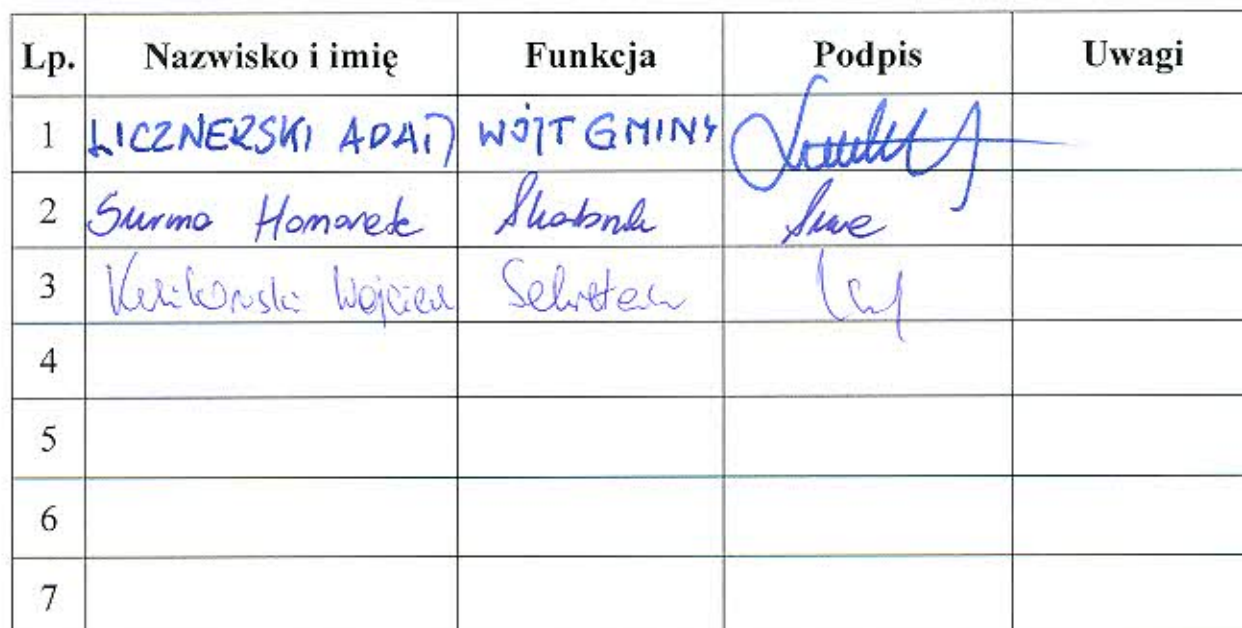 Lp. Nazwisko i imię Funkcja Podpis Uwagi
1 LICZNERSKI ADAM WÓJT GMINY
2 Surma Skarbnik
3 Wojciech Sekretarz
4
5
6
7